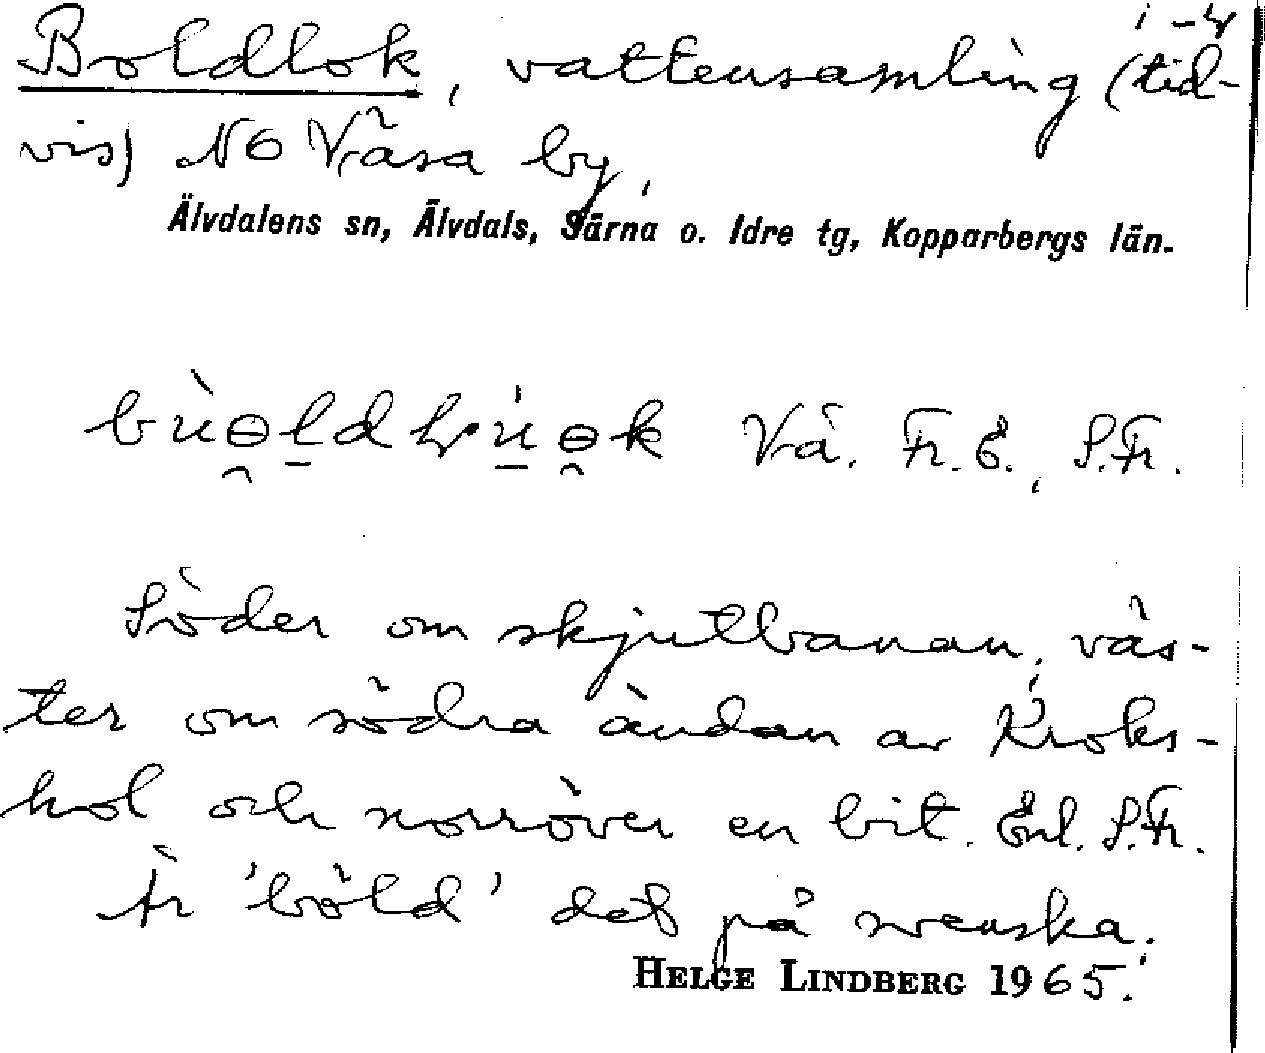 Boldlok, vattensamling (tid-
vis) NO Väsa by,
Älvdalens sn, Älvdals, Särna o. Idre tg, Kopparbergs län.
Vä. Fr. E., S. Fr.
Söder om skjutbanan, väs-
ter om södra ändan av Kroks-
hol och norröver en bit. Enl. S. Fr.
Är 'böld' det på svenska.
HELGE LINDBERG 1965.